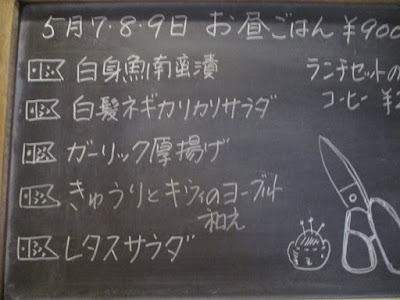 5月7・8・9日 お昼ごはん ¥900
白身魚南蛮漬
ランチセットの
白髪ネギカリカリサラダ
コーヒー ¥2
ガーリック厚揚げ
きゅうりとキウィのヨーグルト
和え
レタスサラダ